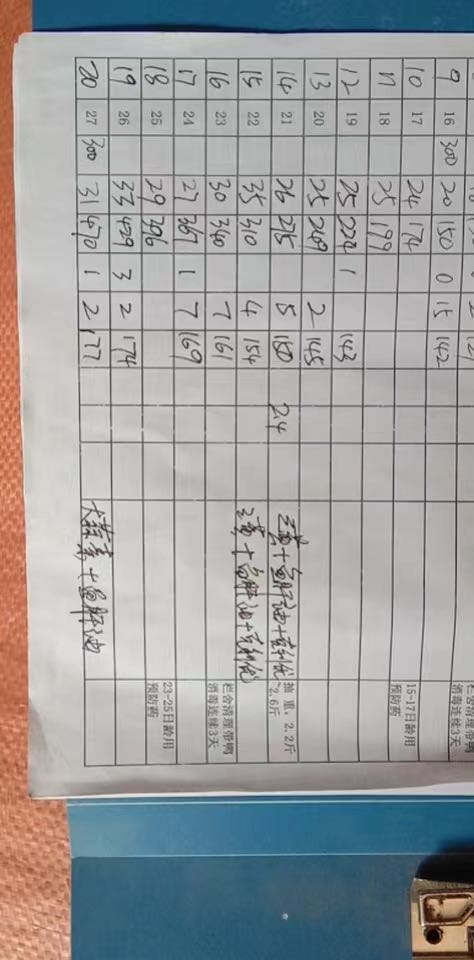 9 16 300 20 150 0 15 142 栏舍清理带鸭
消毒连续3天
10 17 24 174 15-17日龄用
预防药
11 18 25 199
12 19 25 224 1 143
13 20 25 249 2 145
14 21 26 275 5 150 24 三黄+鱼肝油+ 抽重:2.2斤
-2.6斤
15 22 35 310 4 154 三黄+鱼肝油+
16 23 30 340 7 161 栏舍清理带鸭
消毒连续3天
17 24 27 367 1 7 169
18 25 29 396 23-25日龄用
预防药
19 26 33 429 3 2 174
20 27 300 31 470 1 2 177 大蒜素+鱼肝油